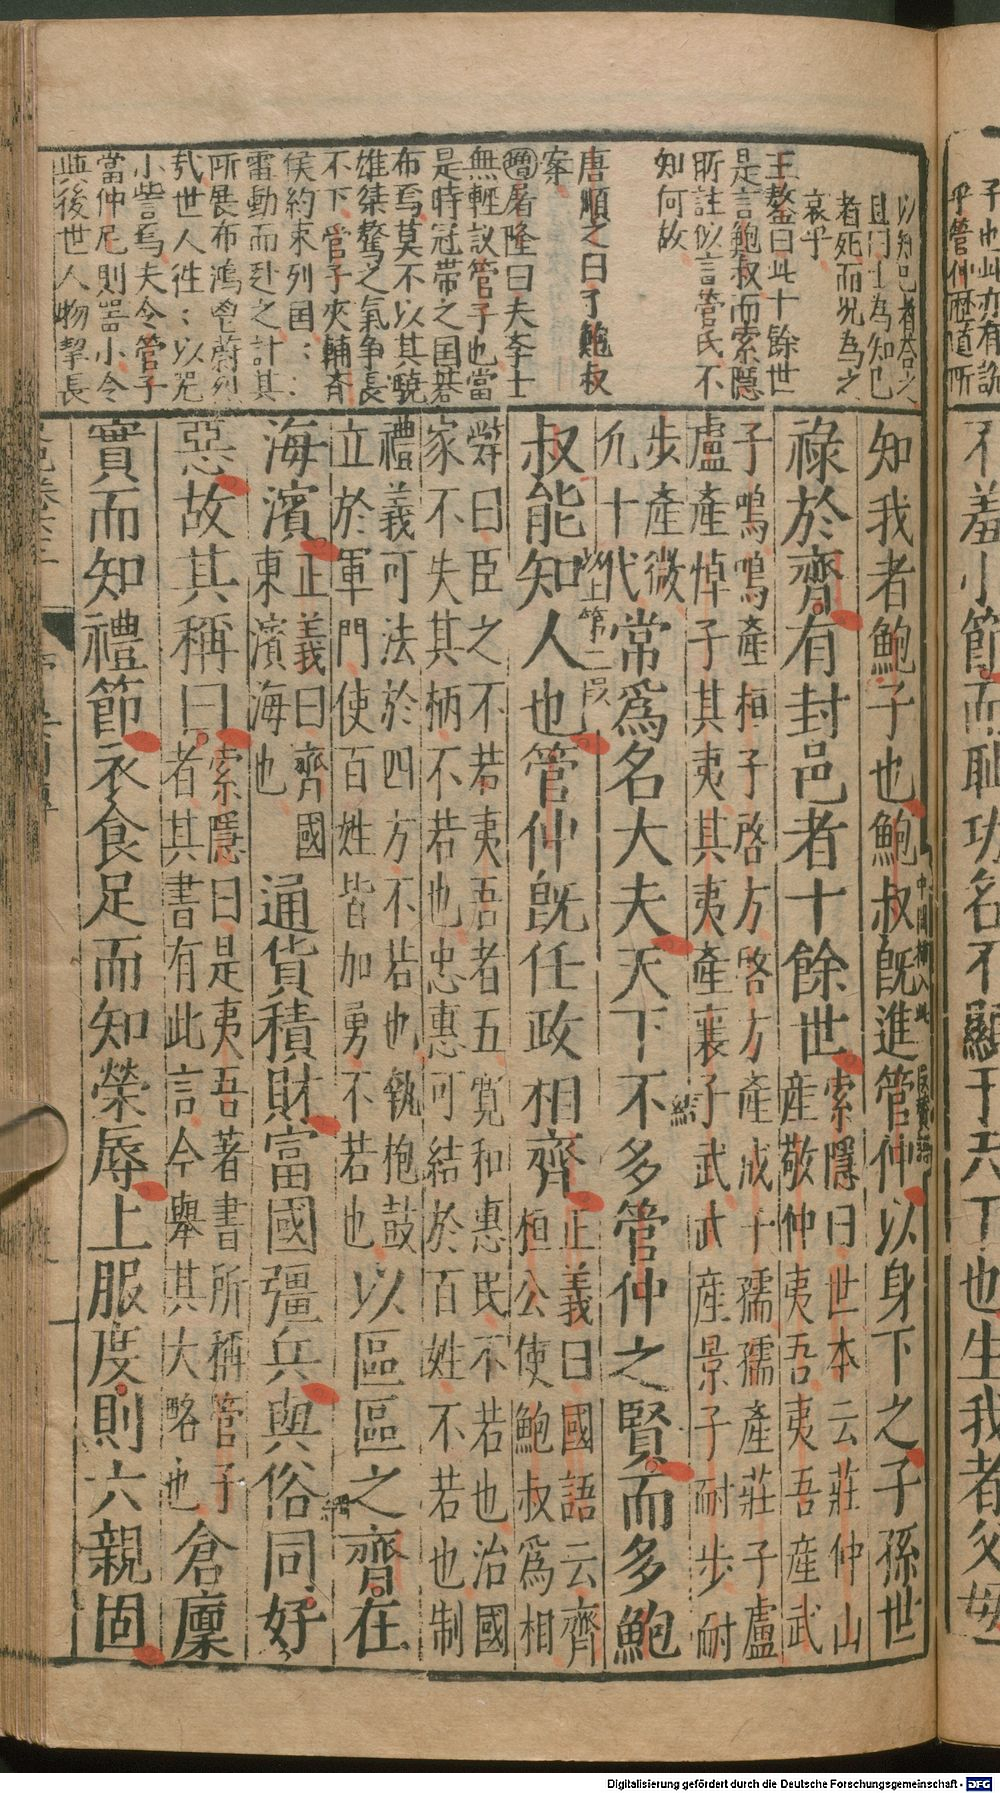 子也此亦有説
乎管仲歴道所
以知己者各合之
且門士為知己
者死而况為之
哀乎
王鏊曰此十餘世
是言鮑叔而索隠
所註似言管氏不
知何故
唐順之曰了鮑叔
案
增屠隆曰夫李士
無輕議管子也當
是時冠帶之国碁
布焉莫不以其驍
雄桀驁之氣争長
不下管子夾輔斉
侯約束列国
雷動而赴之計其
所展布鴻鬯蔚烈
㢤世人徃〻以咒
小訾焉夫令管子
當仲尼則噐小令
與後世人物挈長
不羞小節而耻功名不顯于天下也生我者父母
知我者鮑子也鮑叔旣進管仲以身下之子孫世
中間插入此
祿於齊有封邑者十餘世索隱曰世本云莊仲山
産敬仲夷吾夷吾産武
子鳴鳴產桓子啓方啓方產成子孺孺產莊子盧
盧產悼子其夷其夷產襄子武武産景子耐步耐
步産微
凢十代常爲名大夫天下不多管仲之賢而多鮑
結
上第二段
叔能知人也管仲旣任政相齊正義曰國語云齊
桓公使鮑叔爲相
辤曰臣之不若夷吾者五寬和惠民不若也治國
家不失其柄不若也忠惠可結於百姓不若也制
禮義可法於四方不若也執枹鼓
立於軍門使百姓皆加勇不若也以區區之齊在
海濱正義曰齊國
東濱海也通貨積財富國彊兵與俗同好
綱
惡故其稱曰索隱曰是夷吾著書所稱管子
者其書有此言今舉其大略也倉廩
實而知禮節衣食足而知榮辱上服度則六親固
Digitalisierung gefördert durch die Deutsche Forschungsgemeinschaft - DFG